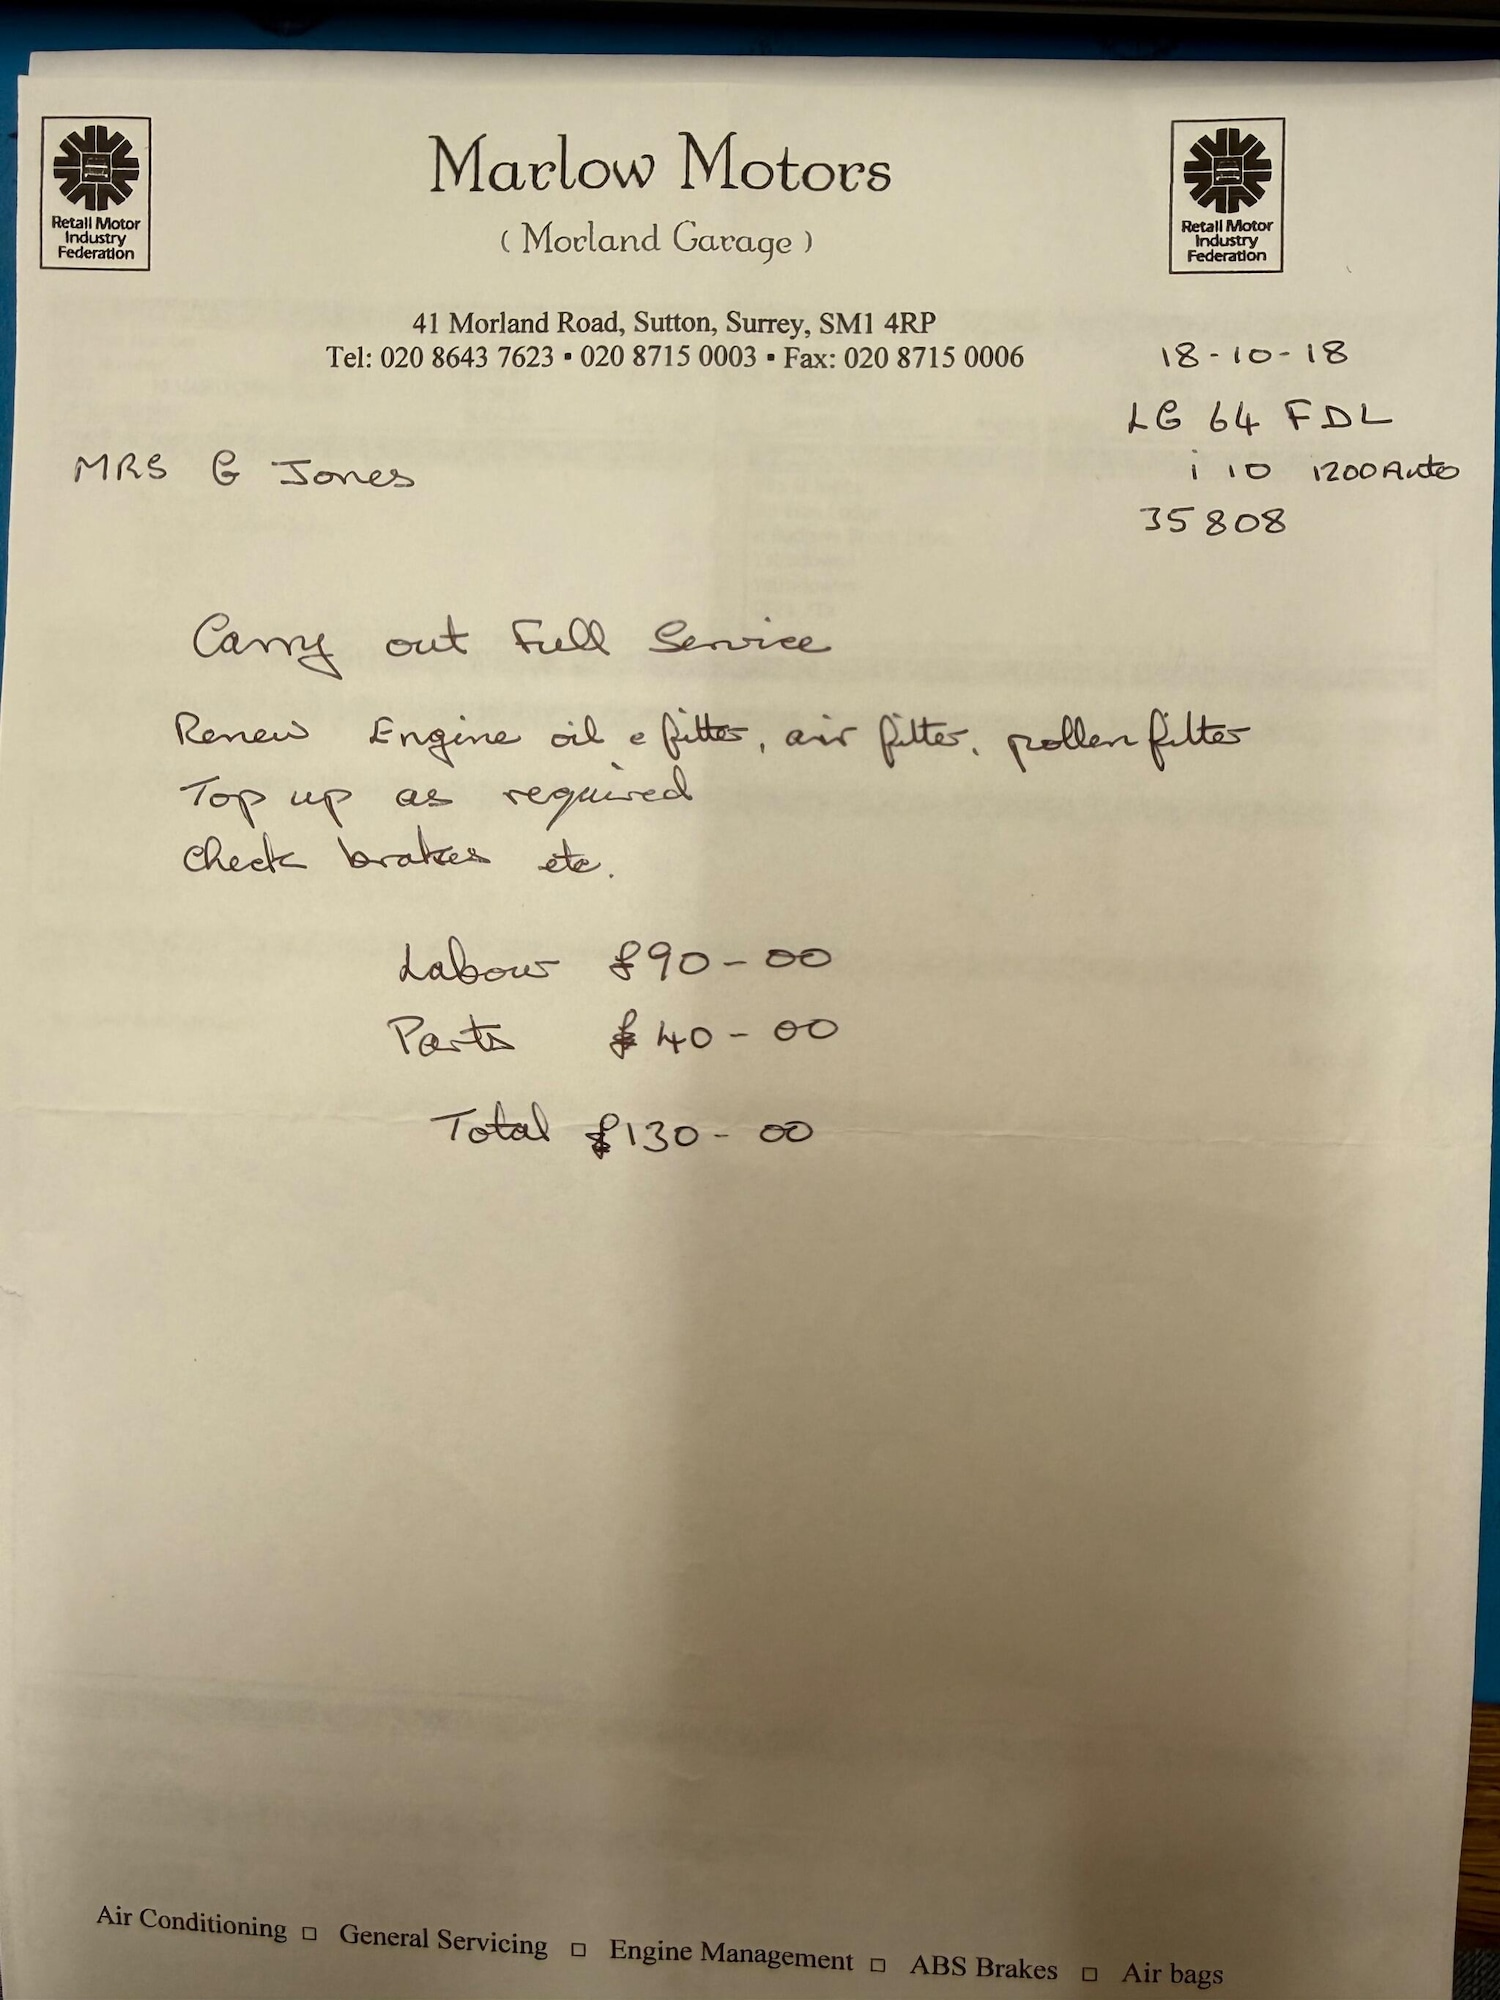 Retail Motor
Industry
Federation
Marlow Motors
( Morland Garage )
Retail Motor
Industry
Federation
41 Morland Road, Sutton, Surrey, SM1 4RP
Tel: 020 8643 7623 ▪ 020 8715 0003 ▪ Fax: 020 8715 0006
18-10-18
LG 64 FDL
MRS G Jones
i 10 1200 Auto
35808
Carry out Full Service
Renew Engine oil e filter, air filter, pollen filter
Top up as required
check brakes etc.
Labour £90-00
Parts £40-00
Total £130-00
Air Conditioning □ General Servicing □ Engine Management □ ABS Brakes □ Air bags